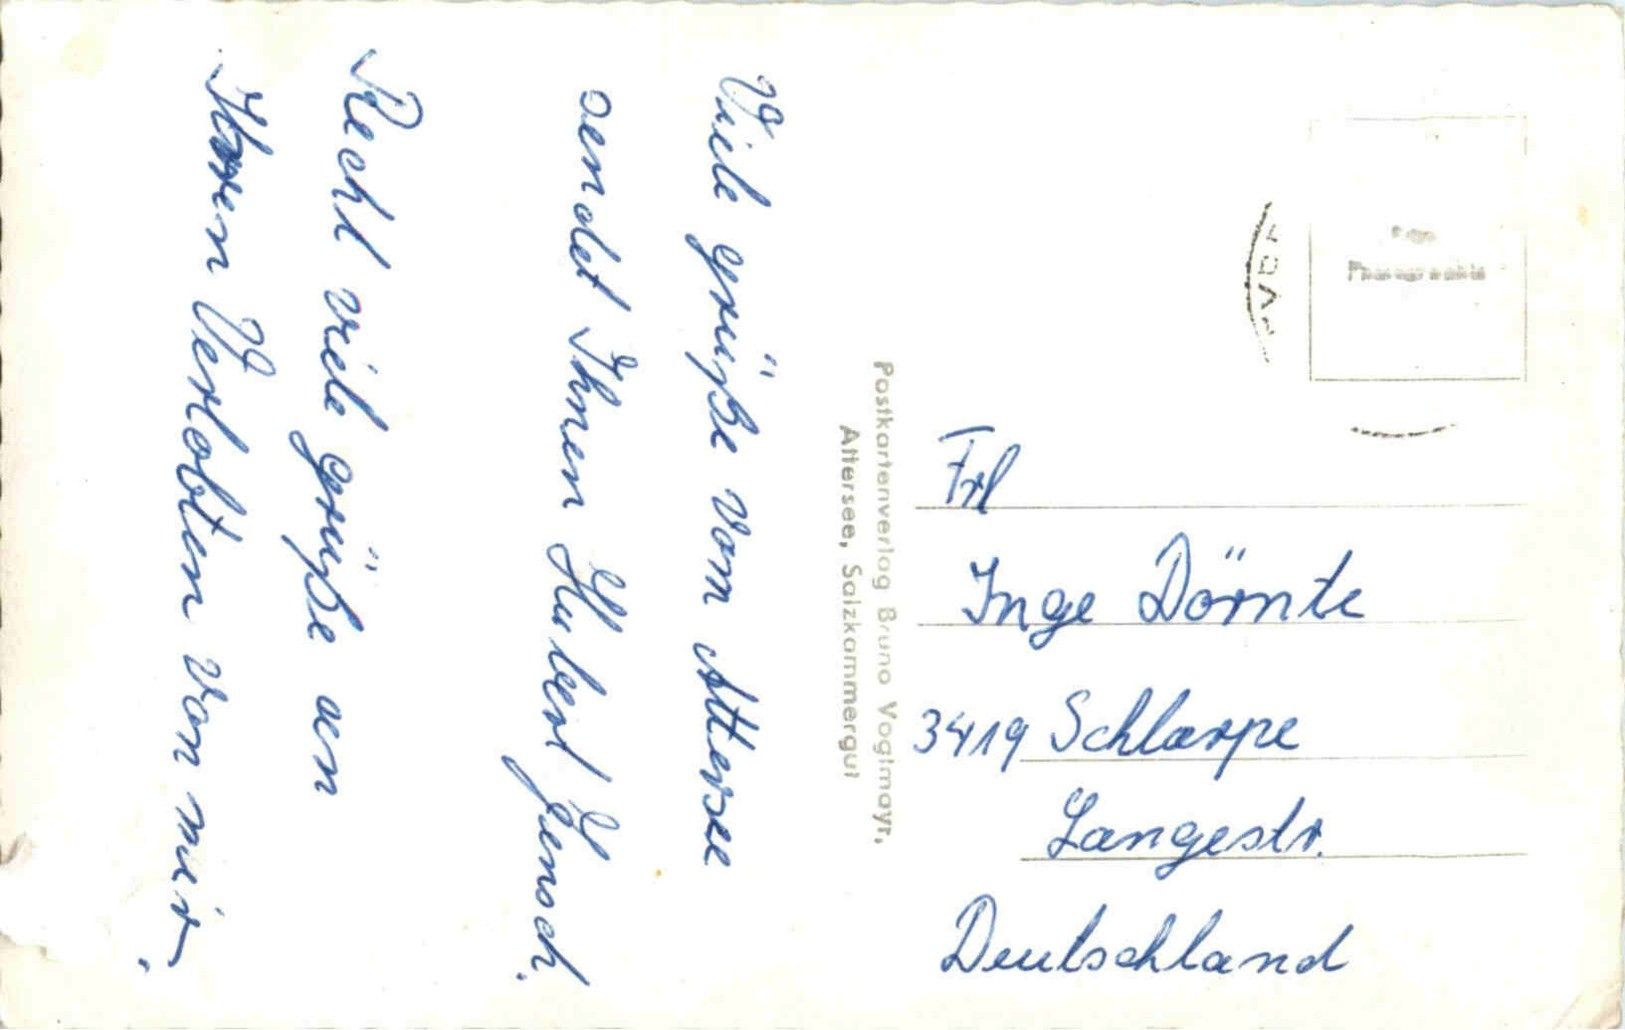 Viele grüße vom Attersee
sendet Ihnen Hubert Jensch.
Recht viele grüße an
Ihren Verlobten von mir.
Postkartenverlag Bruno Voglmayr,
Attersee, Salzkammergut
Frl
Inge Dörnte
3419 Schlarpe
Langestr.
Deutschland